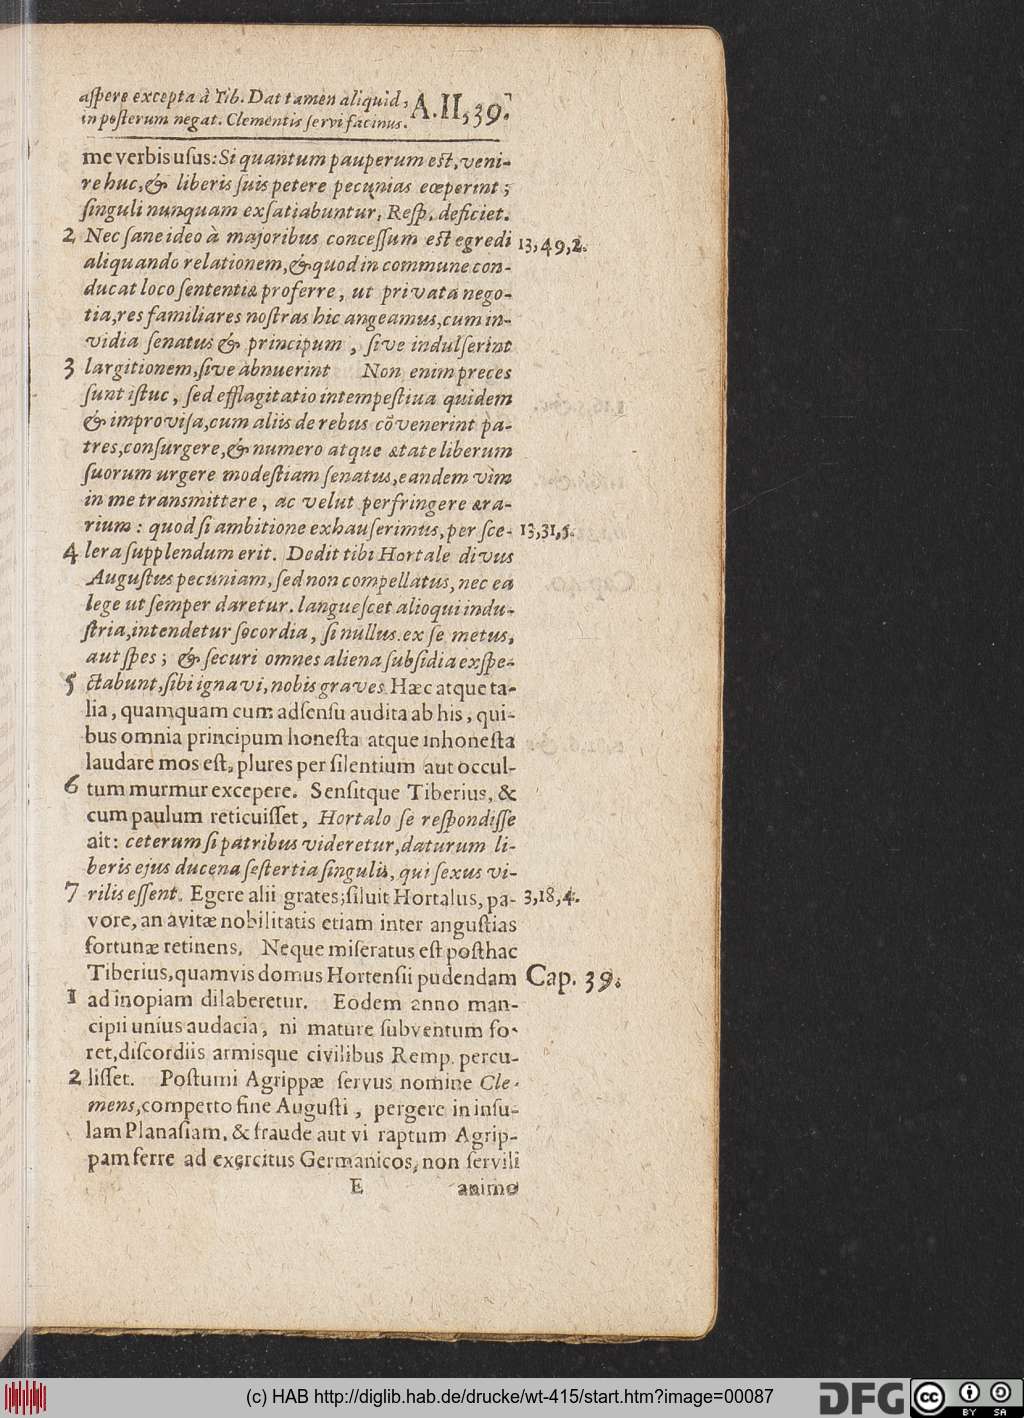 aſpere excepta à Tib. Dat tamen aliquid,
in poſterum negat. Clementis ſervi facinus.
A. II, 39.
me verbis uſus: Si quantum pauperum est, veni-
re huc, & liberis ſuis petere pecunias cœperint;
ſinguli nunquam exſatiabuntur, Reſp. deficiet.
2 Nec ſane ideo à majoribus conceſſum est egredi 13,49,2.
aliquando relationem, & quod in commune con-
ducat loco ſententiæ proferre, ut privata nego-
tia, res familiares noſtras hic angeamus, cum in-
vidia ſenatus & principum, ſive indulſerint
3 largitionem, ſive abnuerint Non enim preces
ſunt iſtuc, ſed efflagitatio intempeſtiva quidem
& improviſa, cum aliis de rebus cõvenerint pa-
tres, conſurgere, & numero atque ætate liberum
ſuorum urgere modeſtiam ſenatus, eandem vim
in me transmittere, ac velut perfringere æra-
rium: quod ſi ambitione exhauſerimus, per ſce- 13,31,5.
4 lera ſupplendum erit. Dedit tibi Hortale divus
Auguſtus pecuniam, ſed non compellatus, nec ea
lege ut ſemper daretur. langueſcet alioqui indu-
ſtria, intendetur ſocordia, ſi nullus ex ſe metus,
aut ſpes; & ſecuri omnes aliena ſubſidia exſpe-
5 ctabunt, ſibi ignavi, nobis graves Hæc atque ta-
lia, quamquam cum adſenſu audita ab his, qui-
bus omnia principum honeſta atque inhoneſta
laudare mos eſt, plures per ſilentium aut occul-
6 tum murmur excepere. Senſitque Tiberius, &
cum paulum reticuiſſet, Hortalo ſe reſpondiſſe
ait: ceterum ſi patribus videretur, daturum li-
beris ejus ducena ſeſtertia ſingulis, qui ſexus vi-
7 rilis eſſent. Egere alii grates; ſiluit Hortalus, pa- 3,18,4.
vore, an avitæ nobilitatis etiam inter anguſtias
fortunæ retinens. Neque miſeratus eſt poſthac
Tiberius, quamvis domus Hortenſii pudendam Cap. 39.
1 ad inopiam dilaberetur. Eodem anno man-
cipii unius audacia, ni mature ſubventum fo-
ret, diſcordiis armisque civilibus Remp. percu-
2 liſſet. Poſtumi Agrippæ ſervus nomine Cle-
mens, comperto fine Auguſti, pergere in inſu-
lam Planaſiam, & fraude aut vi raptum Agrip-
pam ferre ad exercitus Germanicos, non ſervili
E animo
(c) HAB http://diglib.hab.de/drucke/wt-415/start.htm?image=00087
DFG
cc BY SA